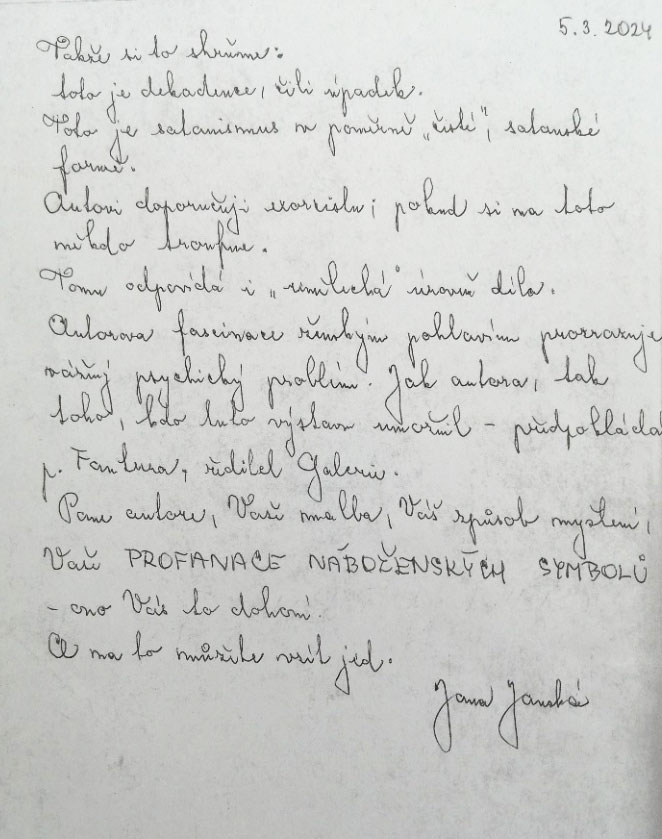 5. 3. 2024
Takže si to shrňme:
toto je dekadence, čili úpadek.
Toto je satanismus v poměrně „čisté", satanské
formě.
Autovi doporučuji exorcistu; pokud si na toto
někdo troufne.
Tomu odpovídá i „umělecká" úroveň díla.
Autorova fascinace ženským pohlavím prozrazuje
vážný psychický problém. Jak autora, tak
toho, kdo tuto výstavu umožnil – předpokládá
p. Fantura, ředitel Galerie.
Pane autore, Vaše malba, Váš způsob myšlení,
Vaše PROFANACE NÁBOŽENSKÝCH SYMBOLŮ
– ono Vás to dohoní.
A na to můžete vzít jed.
Jana Janská